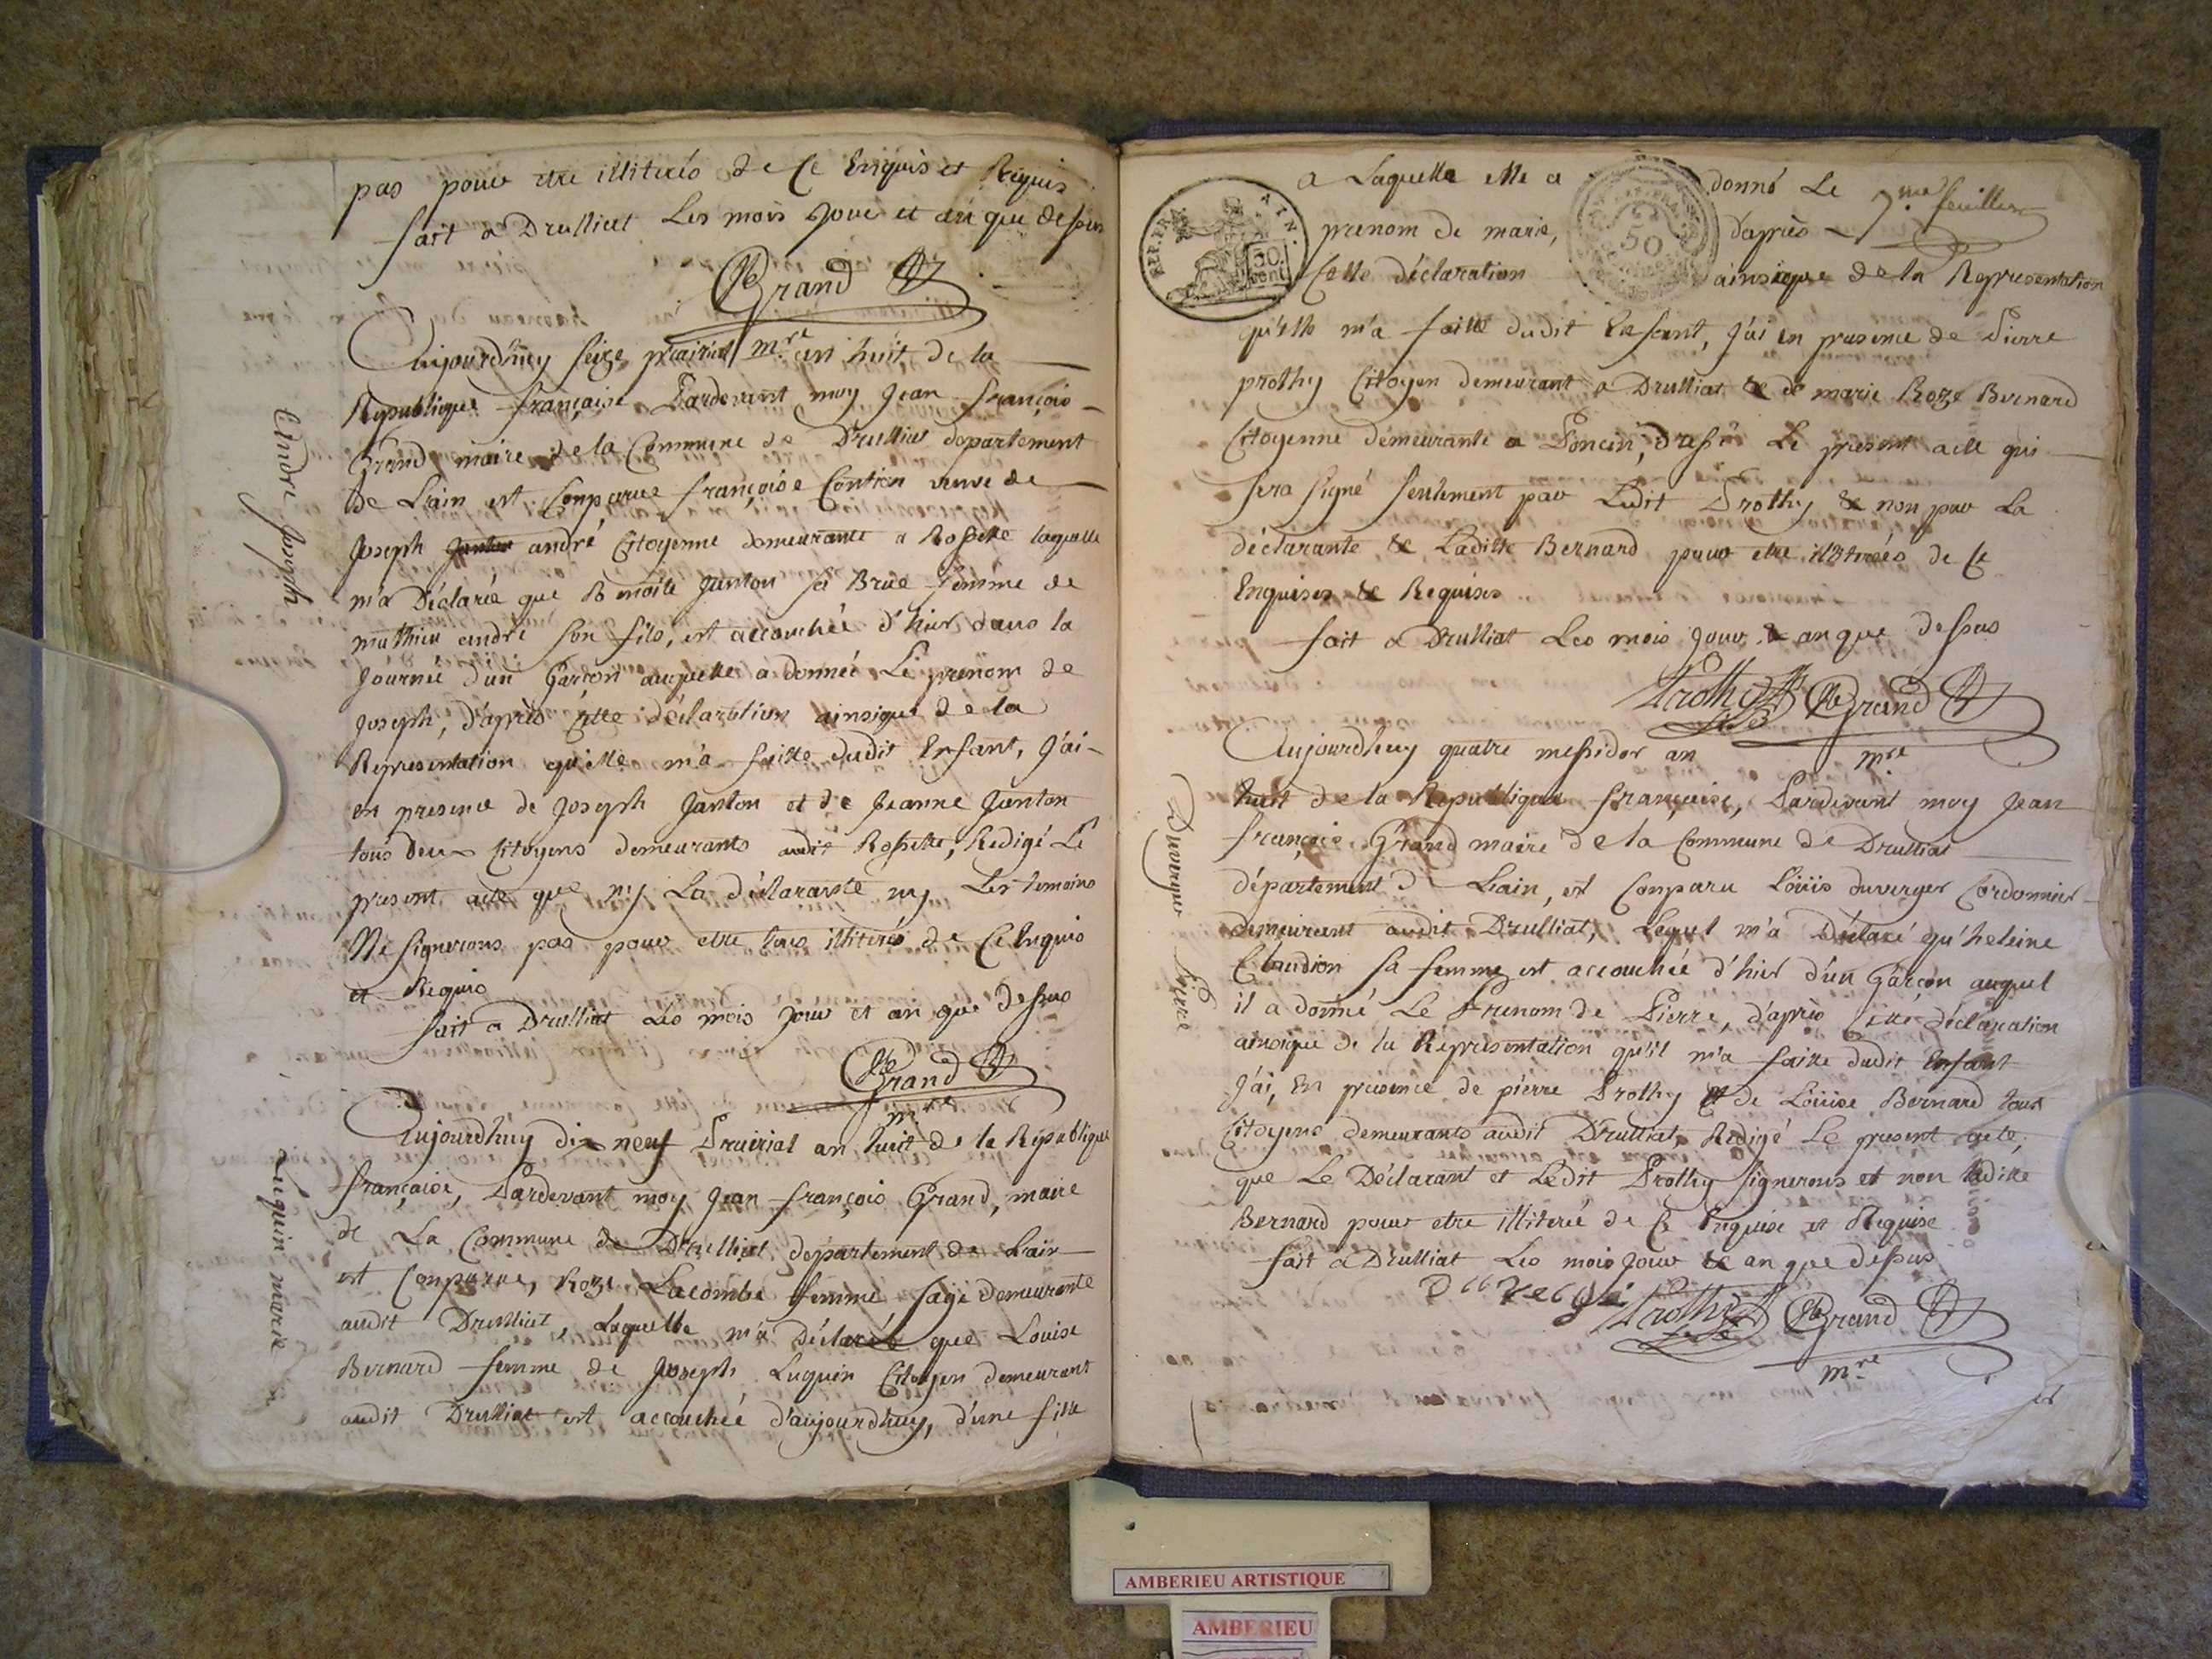 pas pour etre illiterés de ce Enquis et Requis
fait a Druilliat Les mois Jour et an que dessus
Grand
mre
Aujourdhuy seize prairial an huit de la
Republique française Pardevant moy Jean françois
Grand maire de la Commune de Druilliat departement
de Lain est Comparue françoise Contion veuve de
Joseph andré Citoyenne demeurante a Rossette laquelle
m'a Déclarée que Benoite Janton sa Brue femme de
mathieu andré son fils, est accouchée d'hier dans la
Journée d'un Garçon auquelle a donnée Le prenom de
Joseph, d'après cette déclaration ainsique de la
Representation qu'elle m'a faitte dudit Enfant, J'ai
en presence de Joseph Janton et de Jeanne Janton
tous deux Citoyens demeurants audit Rossette, Redigé Le
present acte que ny La déclarante ny Les temoins
Ne signerons pas pour etre tous illiterés de Ce Enquis
et Requis
fait a Druilliat Les mois Jour et an que dessus
Grand
mre
Aujourdhuy dix neuf Prairial an huit de la République
française, Pardevant moy Jean françois Grand, maire
de La Commune de Druilliat departement de Lain
est Comparue, Roze Lacombe femme sage demeurante
audit Druilliat, Laquelle m'a Déclarée que Louise
Bernard femme de Joseph Luguin Citoyen demeurant
audit Druilliat est accouchée d'aujourdhuy, d'une fille
andre Joseph
Luguin marie
a Laquelle elle a donné Le
prenom de marie, d'après
Cette déclaration ainsique de la Representation
7me feuillet
REP. FRA.
AIN.
50.
cent
50
qu'elle m'a faitte dudit Enfant, J'ai en presence de Pierre
prothy Citoyen demeurant a Druilliat & de marie Roze Bernard
Citoyenne demeurante a Poncin, dressé Le present acte qui
sera signé seulement par Ledit Prothy & non par La
déclarante & Laditte Bernard pour etre illiterées de Ce
Enquises & Requises
fait a Druilliat Les mois Jour & an que dessus
Prothy Grand
mre
Aujourdhuy quatre messidor an
huit de la Republique française, Pardevant moy Jean
françois Grand maire de la Commune de Druilliat
département de Lain, est Comparu Loüis duverger Cordonnier
demeurant audit Druilliat, Lequel m'a Déclaré qu'heleine
Claudion sa femme est accouchée d'hier d'un Garçon auquel
il a donné Le Prenom de Pierre, d'après cette déclaration
ainsique de la Représentation qu'il m'a faitte dudit Enfant
J'ai, En présence de pierre Prothy et de Loüise Bernard tous
Citoyens demeurants audit Druilliat, Redigé Le present acte,
que Le Déclarant et Ledit Prothy signerons et non laditte
Bernard pour etre illiterée de Ce Enquise et Requise
fait a Druilliat Les mois Jour & an que dessus
Prothy Grand
mre
Duverger Pierre
AMBERIEU ARTISTIQUE
AMBERIEU